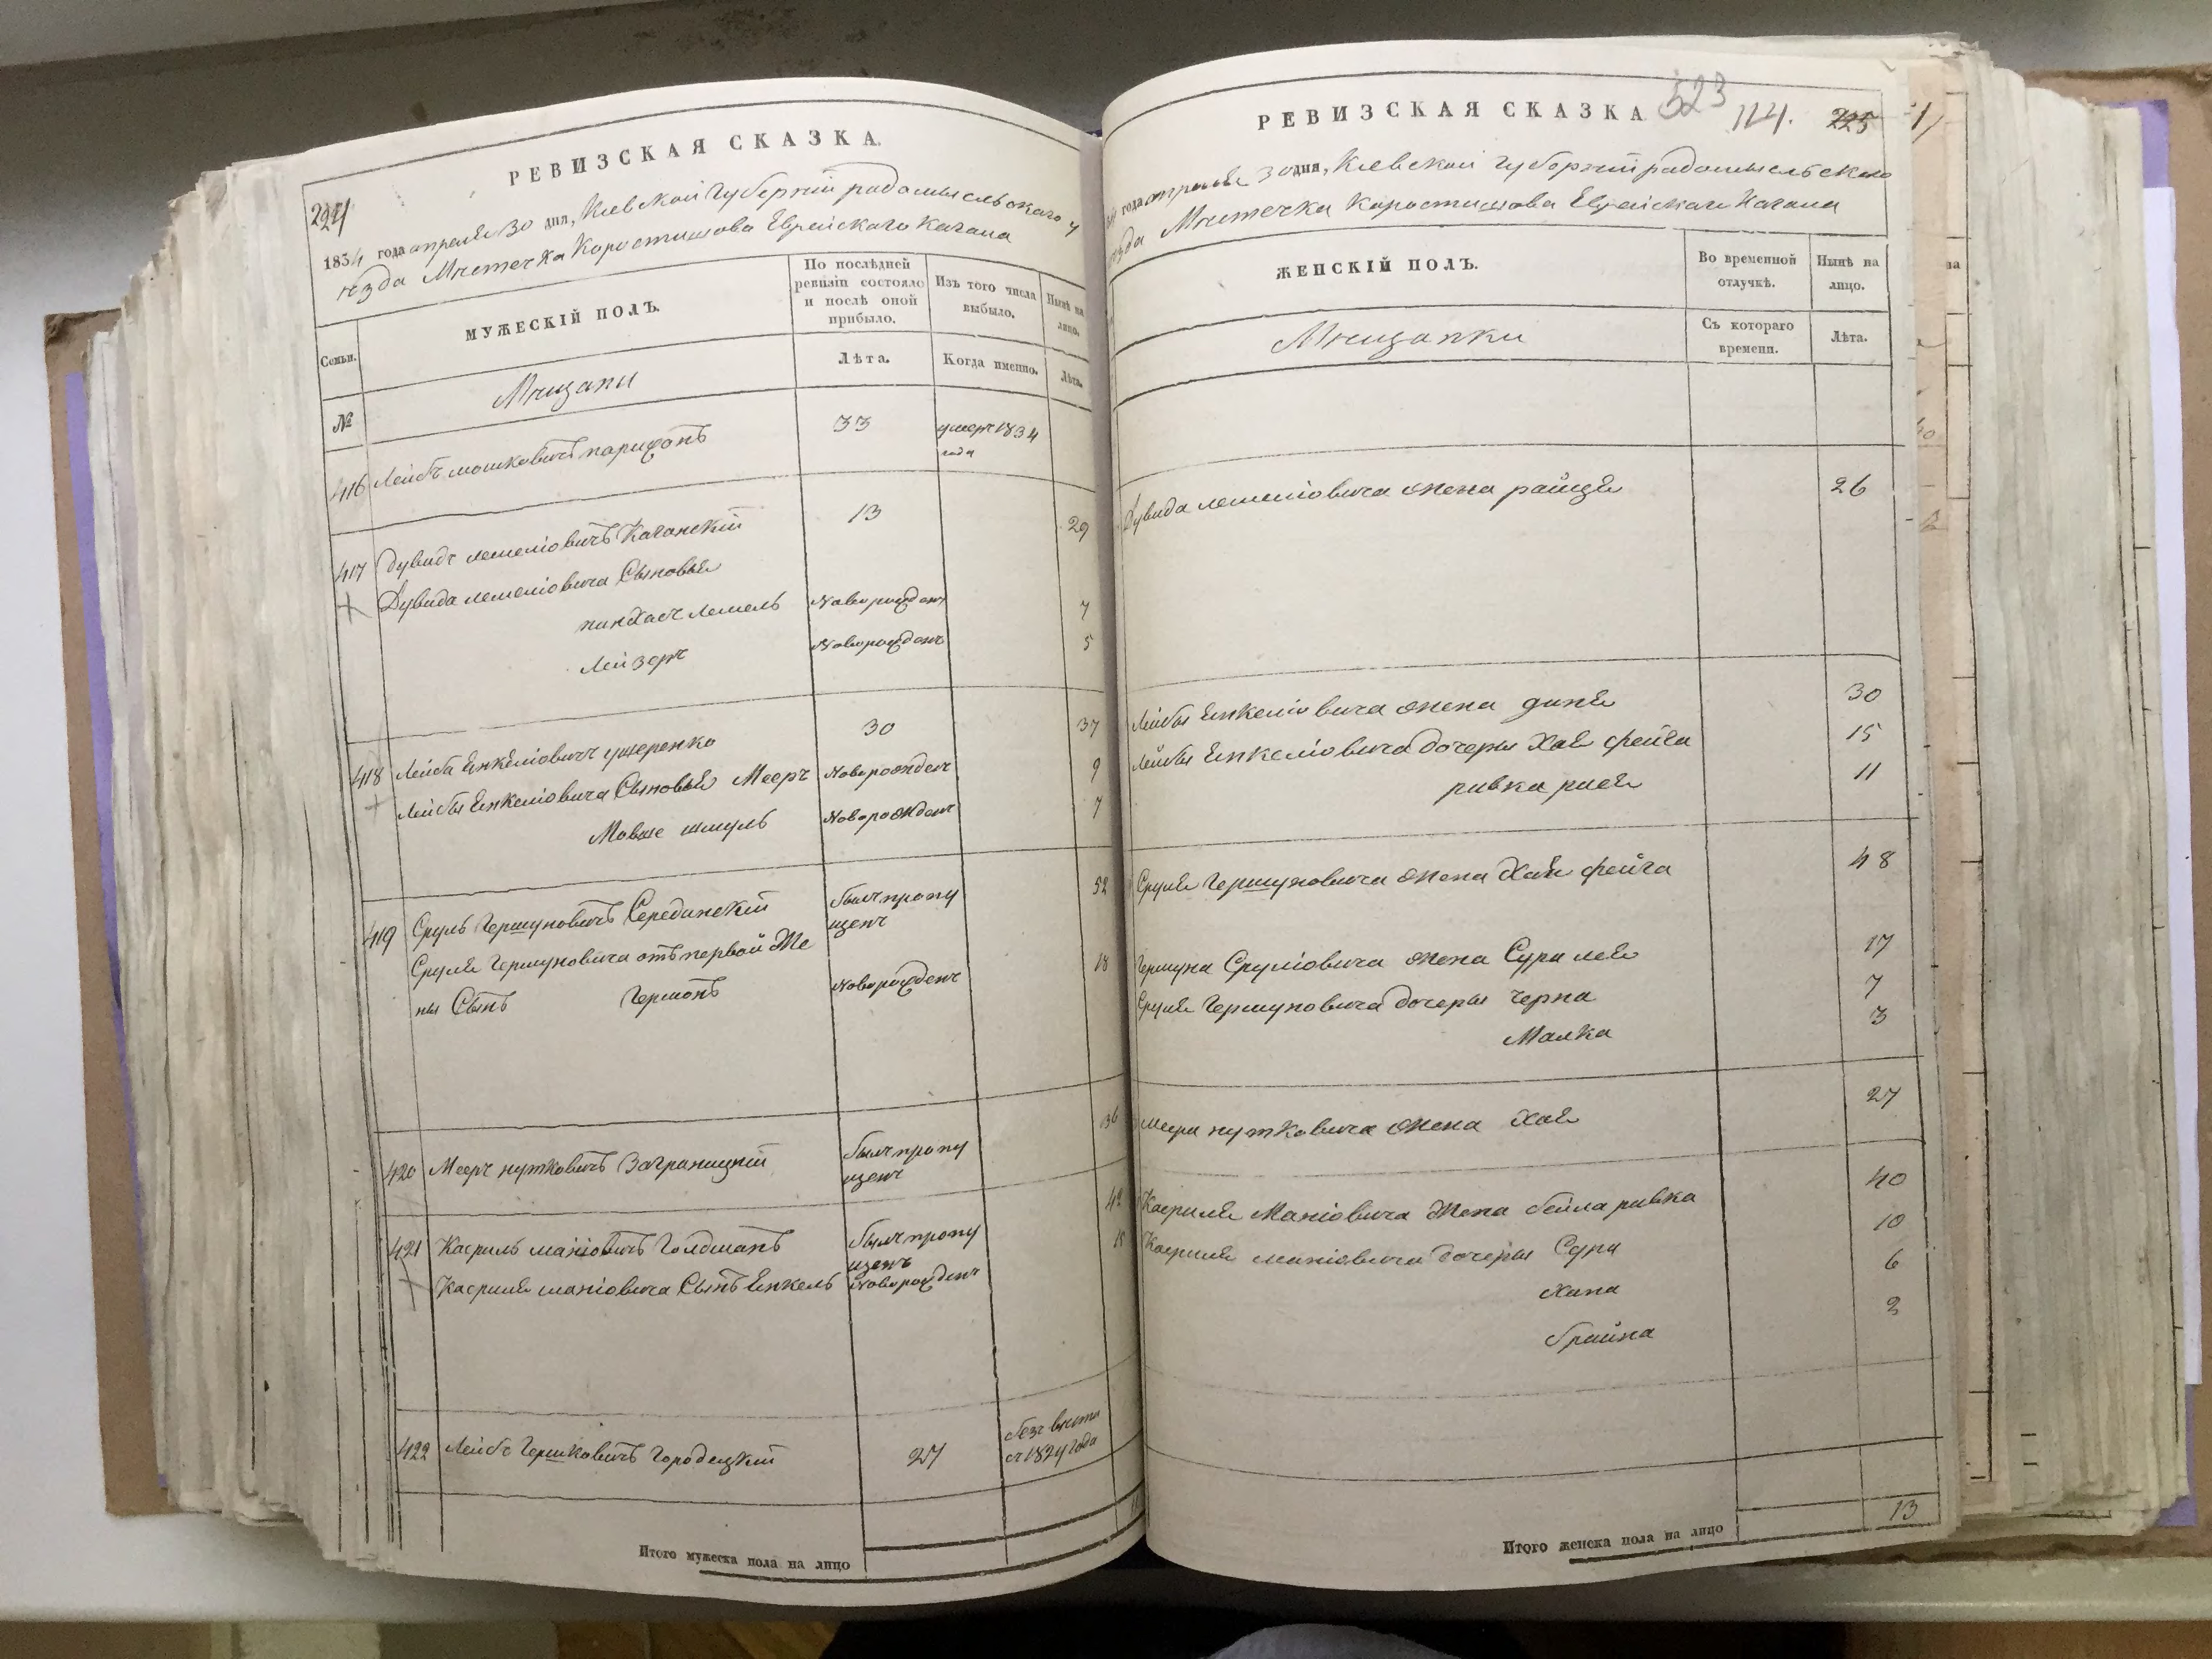 РЕВИЗСКАЯ СКАЗКА.
224
1834 года апреля 30 дня, Киевской Губернии радомысльского у
езда Местечка Коростишова Еврейского Кагала
Семьи.
МУЖЕСКІЙ ПОЛЪ.
По послѣдней ревизіи состояло и послѣ оной прибыло.
Изъ того числа выбыло.
Нынѣ на лицо.
№
Мещане
Лѣта.
Когда именно.
Лѣта.
416 Лейбъ мошковичъ 33 умеръ 1834
года
417 Дувидъ лемеліовичъ Каганскій 13 29
Дувида лемеліовича Сыновья
пинхасъ лемель Новорожденъ 7
Лейзеръ Новорожденъ 5
418 Лейба Енкеліовичъ ушеренко 30 37
Лейбы Енкеліовича Сыновья Мееръ Новорожденъ 9
Мовше шмуль Новорожденъ 7
419 Сруль Гершуновичъ Серединскій былъ пропу
щенъ 52
Сруля Гершуновича отъ первой Же
ны Сынъ Гершонъ Новорожденъ 18
420 Мееръ нутковичъ Заграницкій былъ пропу
щенъ 36
421 Касриль маніовичъ Голдманъ былъ пропу
щенъ 42
Касриля маніовича Сынъ Енкель Новорожденъ
422 Лейбъ Гершковичъ Городецкій 27 безъ вести
съ 1824 года
Итого мужеска пола на лицо
РЕВИЗСКАЯ СКАЗКА
523 114. 225
года апреля 30 дня, Киевской Губерніи радомысльского
уезда Местечка Коростишова Еврейскаго Кагала
ЖЕНСКІЙ ПОЛЪ.
Во временной отлучкѣ.
Нынѣ на лицо.
Мещанки
Съ котораго времени.
Лѣта.
Дувида лемеліовича жена райця 26
Лейбы Енкеліовича жена диня 30
Лейбы Енкеліовича дочеры Хая фейга 15
ривка рися 11
Сруля Гершуновича жена Хая фейга 48
Гершуна Сруліовича жена Сура лея 17
Сруля Гершуновича дочеры черна 7
Малка 3
Меера нутковича жена Хая 27
Касриля Маніовича Жена бейла ривка 40
Касриля маніовича дочеры Сура 10
Хана 6
брайна 2
13
Итого женска пола на лицо